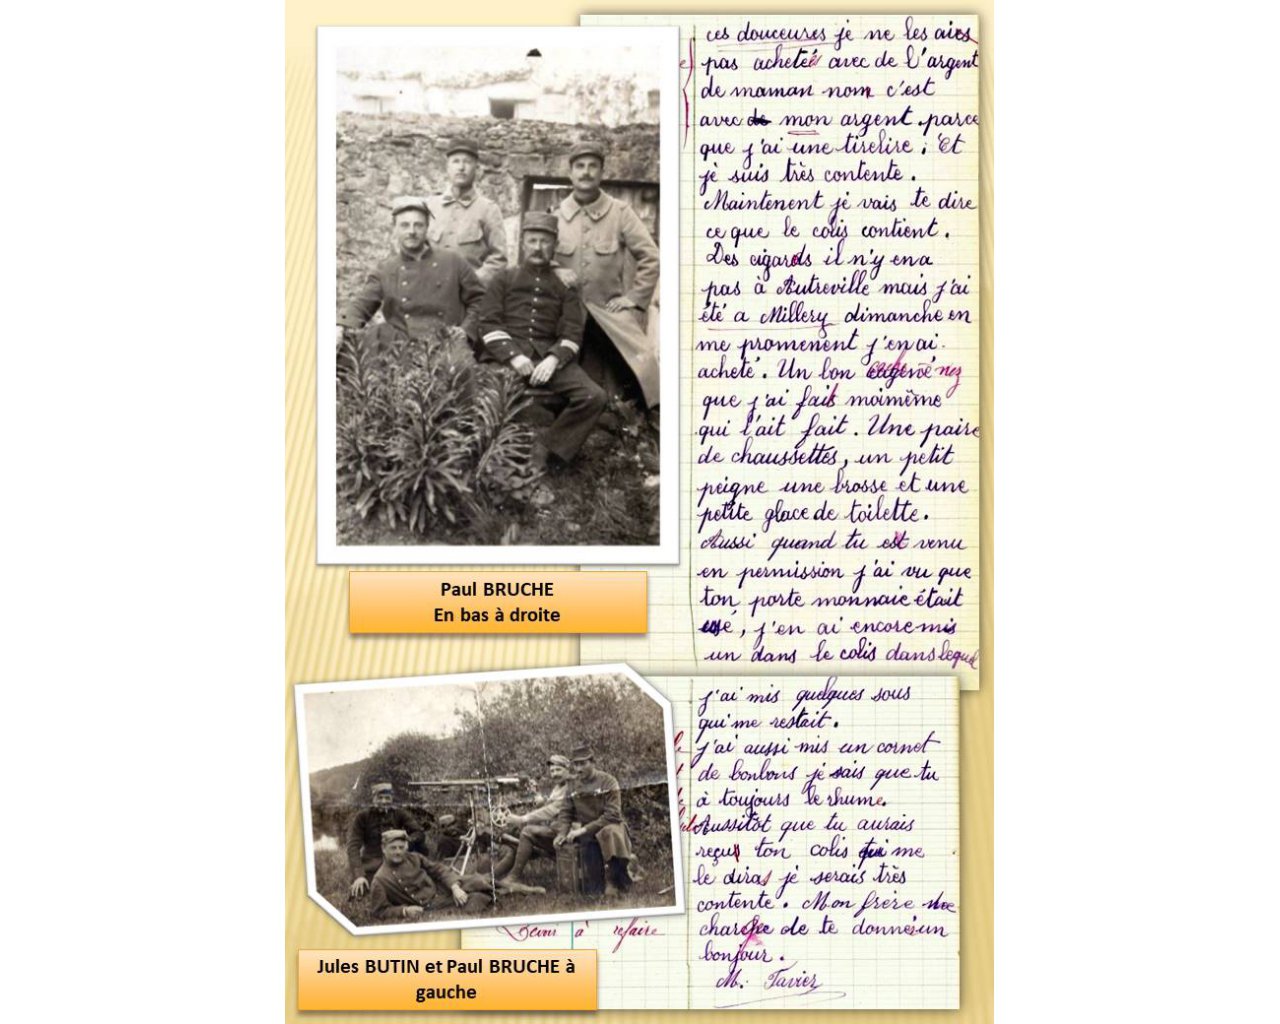 ces douceures je ne les aies
pas acheteés avec de l'argent
de maman nom c'est
avec de mon argent. parce
que j'ai une tirelire ; Et
je suis très contente.
Maintenent je vais te dire
ce que le colis contient.
Des cigards il n'y en a
pas à Autreville mais j'ai
été a Millery dimanche en
me promenent j'en ai
acheté. Un bon nez
que j'ai fait moimême
qui l'ait fait. Une paire
de chaussettes, un petit
peigne une brosse et une
petite glace de toilette.
Aussi quand tu est venu
en permission j'ai vu que
ton porte monnaie était
usé, j'en ai encore mis
un dans le colis dans lequel
Paul BRUCHE
En bas à droite
j'ai mis quelques sous
qui me restait.
j'ai aussi mis un cornet
de bonbons je sais que tu
à toujours le rhume.
Aussitôt que tu aurais
reçus ton colis tu me
le diras je serais très
contente. Mon frère me
charche de te donner un
bonjour.
M. Tavier
à refaire
Jules BUTIN et Paul BRUCHE à
gauche